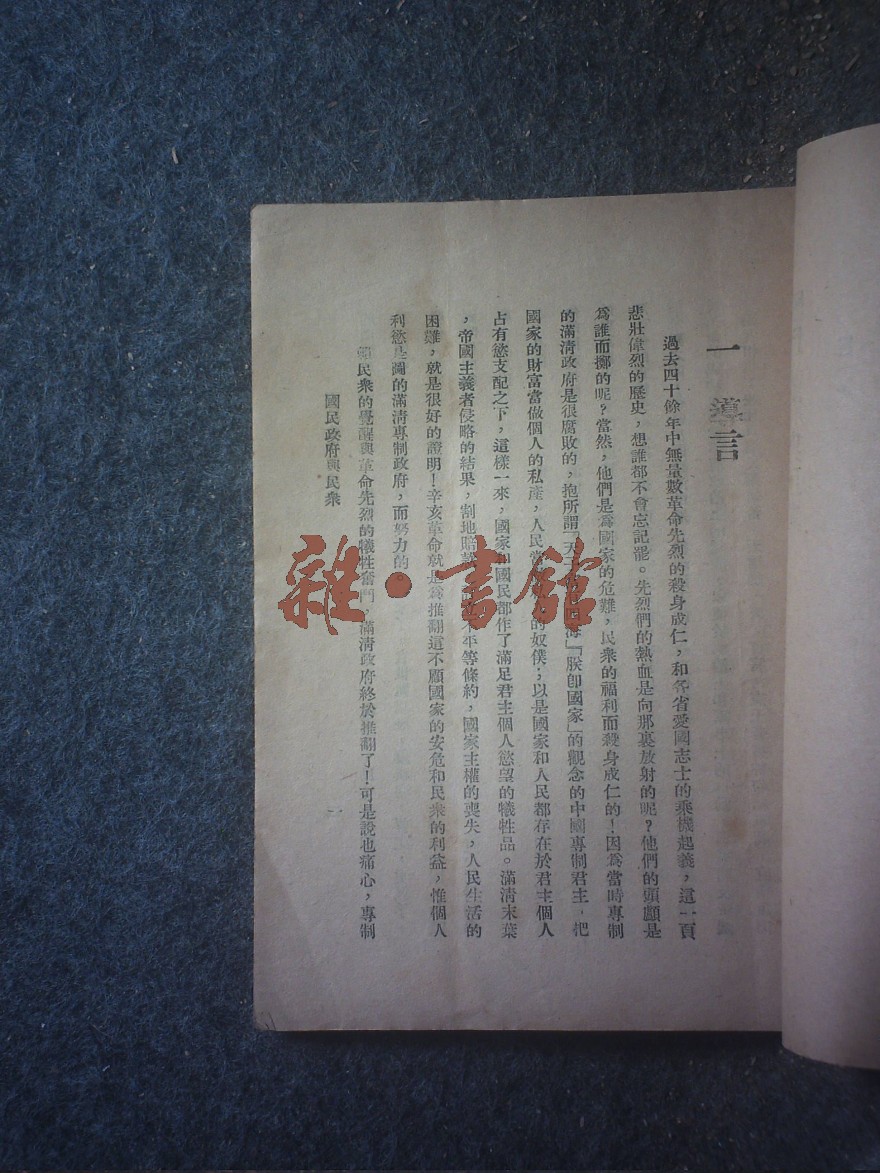 一 導言
過去四十餘年中無量數革命先烈的殺身成仁，和各省愛國志士的乘機起義，這一頁
悲壯偉烈的歷史，想誰都不會忘記罷。先烈們的熱血是向那裏放射的呢？他們的頭顱是
爲誰而擲的呢？當然，他們是爲國家的危難，民衆的福利而殺身成仁的！因爲當時專制
的滿淸政府是很腐敗的，抱所謂「天海」「朕卽國家」的觀念的中國專制君主，把
國家的財富當做個人的私產，人民當的奴僕；以是國家和人民都存在於君主個人
占有慾支配之下，這樣一來，國家和國民都作了滿足君主個人慾望的犧牲品。滿淸末葉
，帝國主義者侵略的結果，割地賠不平等條約，國家主權的喪失，人民生活的
困難，就是很好的證明！辛亥革命就是爲推翻這不顧國家的安危和民衆的利益，惟個人
利慾是圖的滿淸專制政府，而努力的。
賴民衆的覺醒與革命先烈的犧牲奮鬥，滿淸政府終於推翻了！可是說也痛心，專制
國民政府與民衆
一
雜·書館